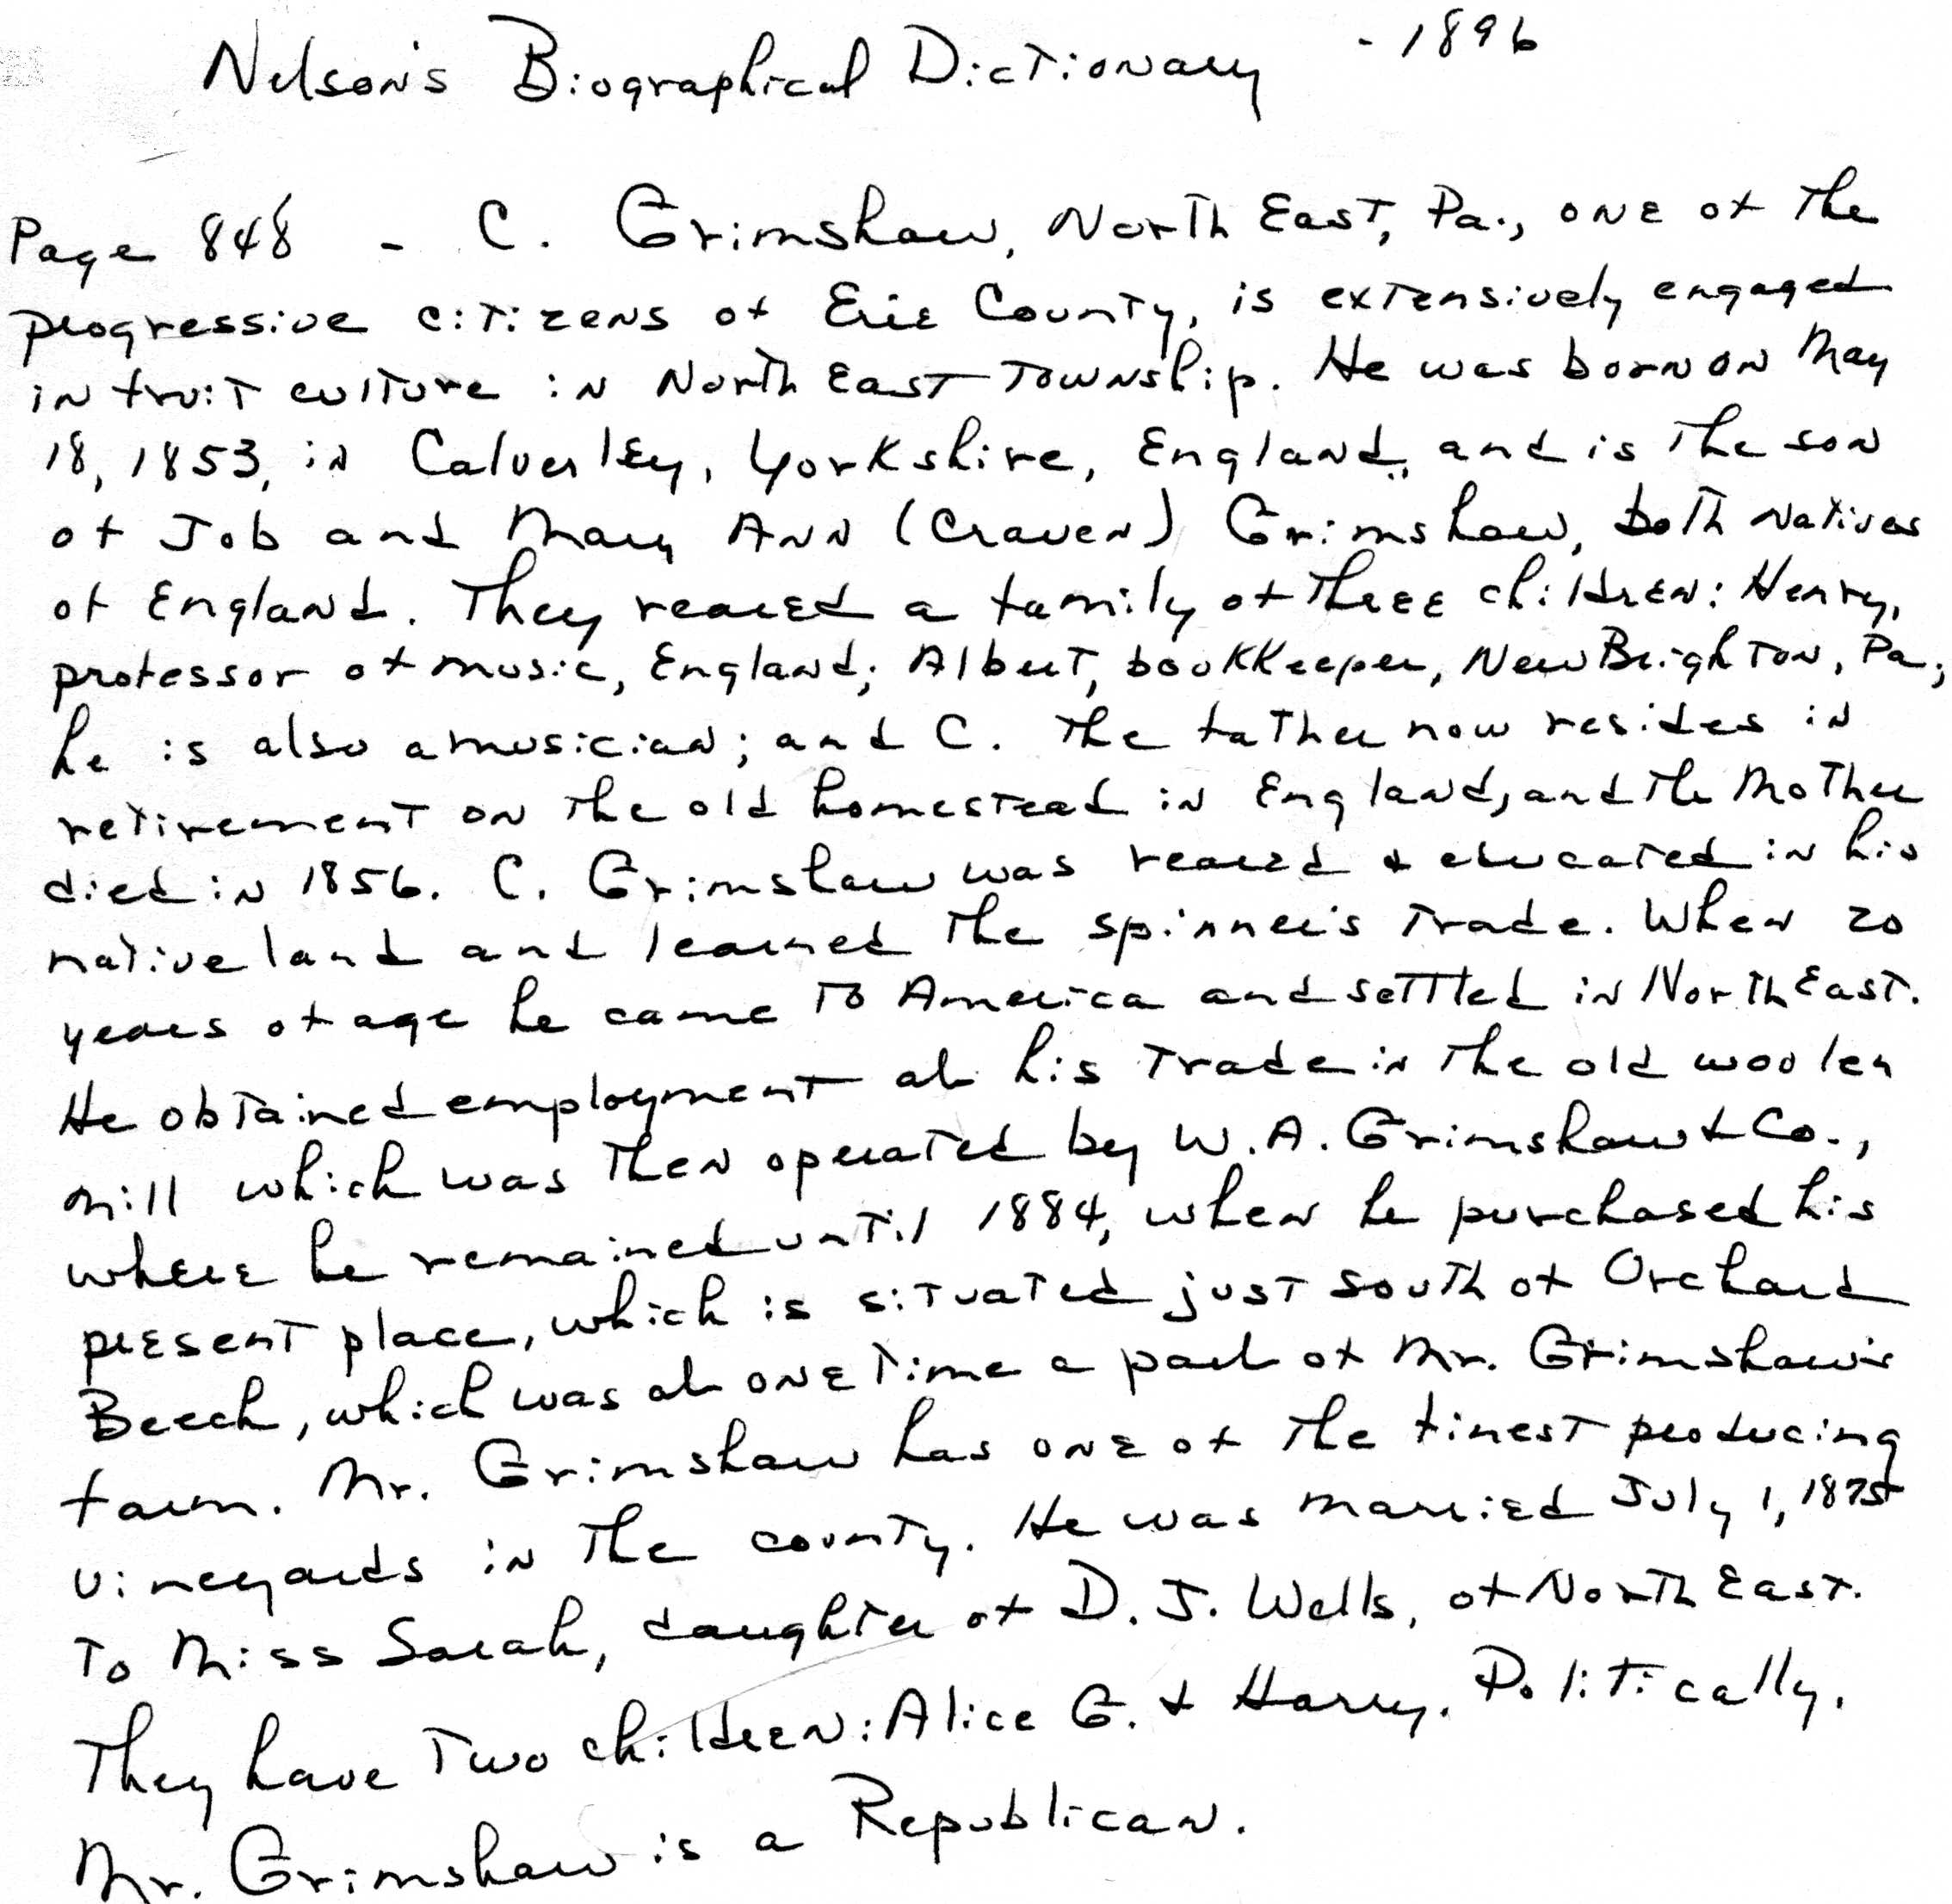 Nelson's Biographical Dictionary - 1896
Page 848 - C. Grimshaw, North East, Pa., one of the
progressive citizens of Erie County, is extensively engaged
in fruit culture in North East Township. He was born on May
18, 1853, in Calverley, Yorkshire, England, and is the son
of Job and Mary Ann (Craven) Grimshaw, both natives
of England. They reared a family of three children: Henry,
professor of music, England; Albert, bookkeeper, New Brighton, Pa;
he is also a musician; and C. The father now resides in
retirement on the old homestead in England, and the mother
died in 1856. C. Grimshaw was reared & educated in his
native land and learned the spinner's trade. When 20
years of age he came to America and settled in North East.
He obtained employment at his trade in the old woolen
mill which was then operated by W.A. Grimshaw & Co.,
where he remained until 1884, when he purchased his
present place, which is situated just south of Orchard
Beech, which was at one time a part of Mr. Grimshaw's
farm. Mr. Grimshaw has one of the finest producing
vineyards in the county. He was married July 1, 1875
to Miss Sarah, daughter of D. J. Wells, of North East.
They have two children: Alice G. & Harry. Politically,
Mr. Grimshaw is a Republican.